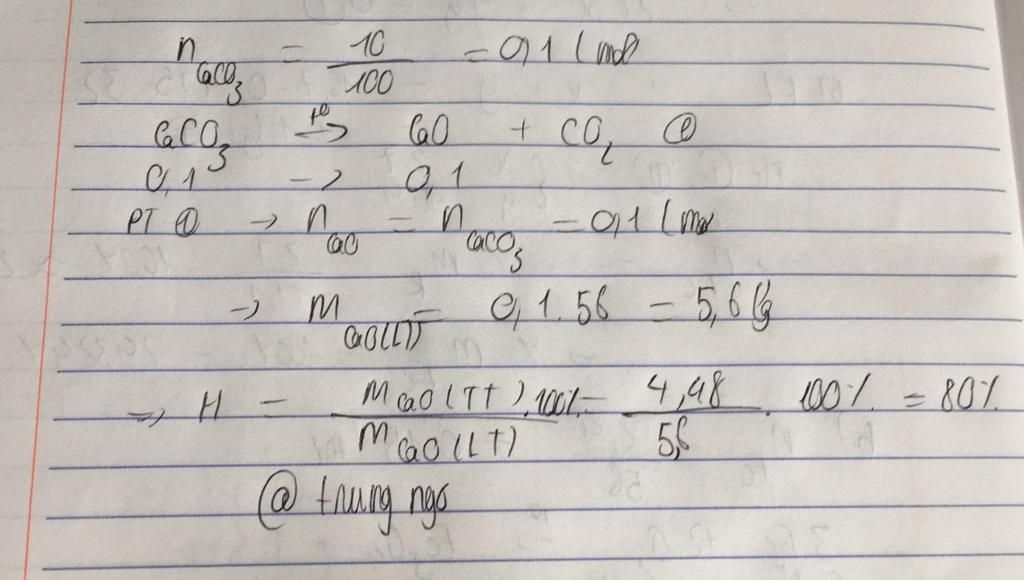 nCaCO3 = 10/100 = 0,1 (mol
CaCO3 t° → CaO + CO2 ①
0,1 → 0,1
PT ① → nCaO = nCaCO3 = 0,1 (mol
→ mCaO(LT) = 0,1.56 = 5,6 (g
=> H = mCaO(TT)/mCaO(LT) .100% = 4,48/5,6 . 100% = 80%
@ trung ngo